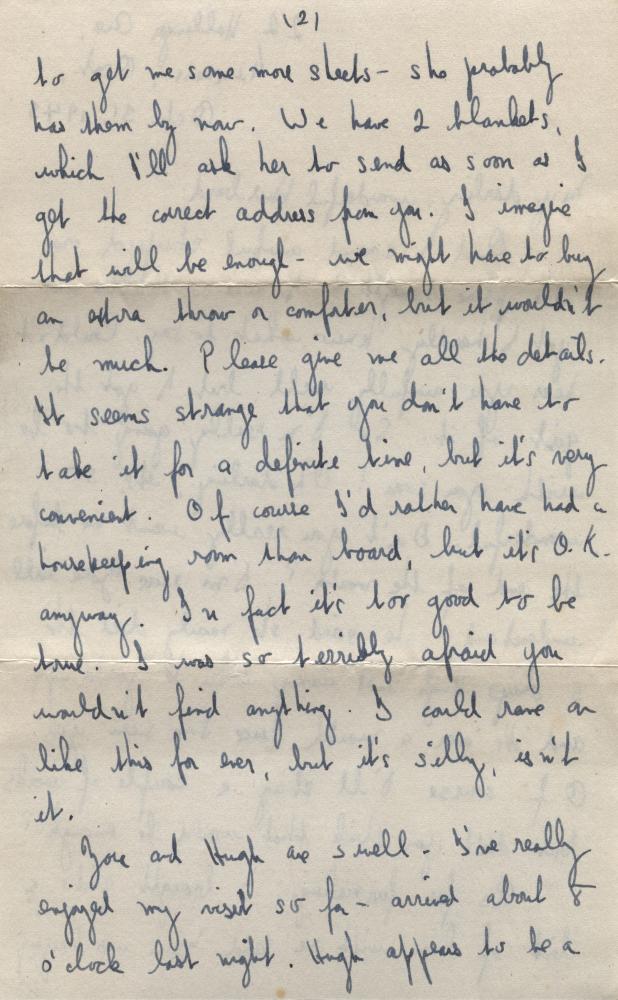 (2)
to get me some more sheets - she probably
has them by now. We have 2 blankets,
which I'll ask her to send as soon as I
get the correct address from you. I imagine
that will be enough - we might have to buy
an extra throw or comforter, but it wouldn't
be much. Please give me all the details.
It seems strange that you don't have to
take it for a definite time, but it's very
convenient. Of course I'd rather have had a
housekeeping room than board, but it's O.K.
anyway. In fact it's too good to be
true. I was so terribly afraid you
wouldn't find anything. I could rave on
like this for ever, but it's silly, isn't
it.
and Hugh are swell - I've really
enjoyed my visit so far - arrived about 8
o'clock last night. Hugh appears to be a